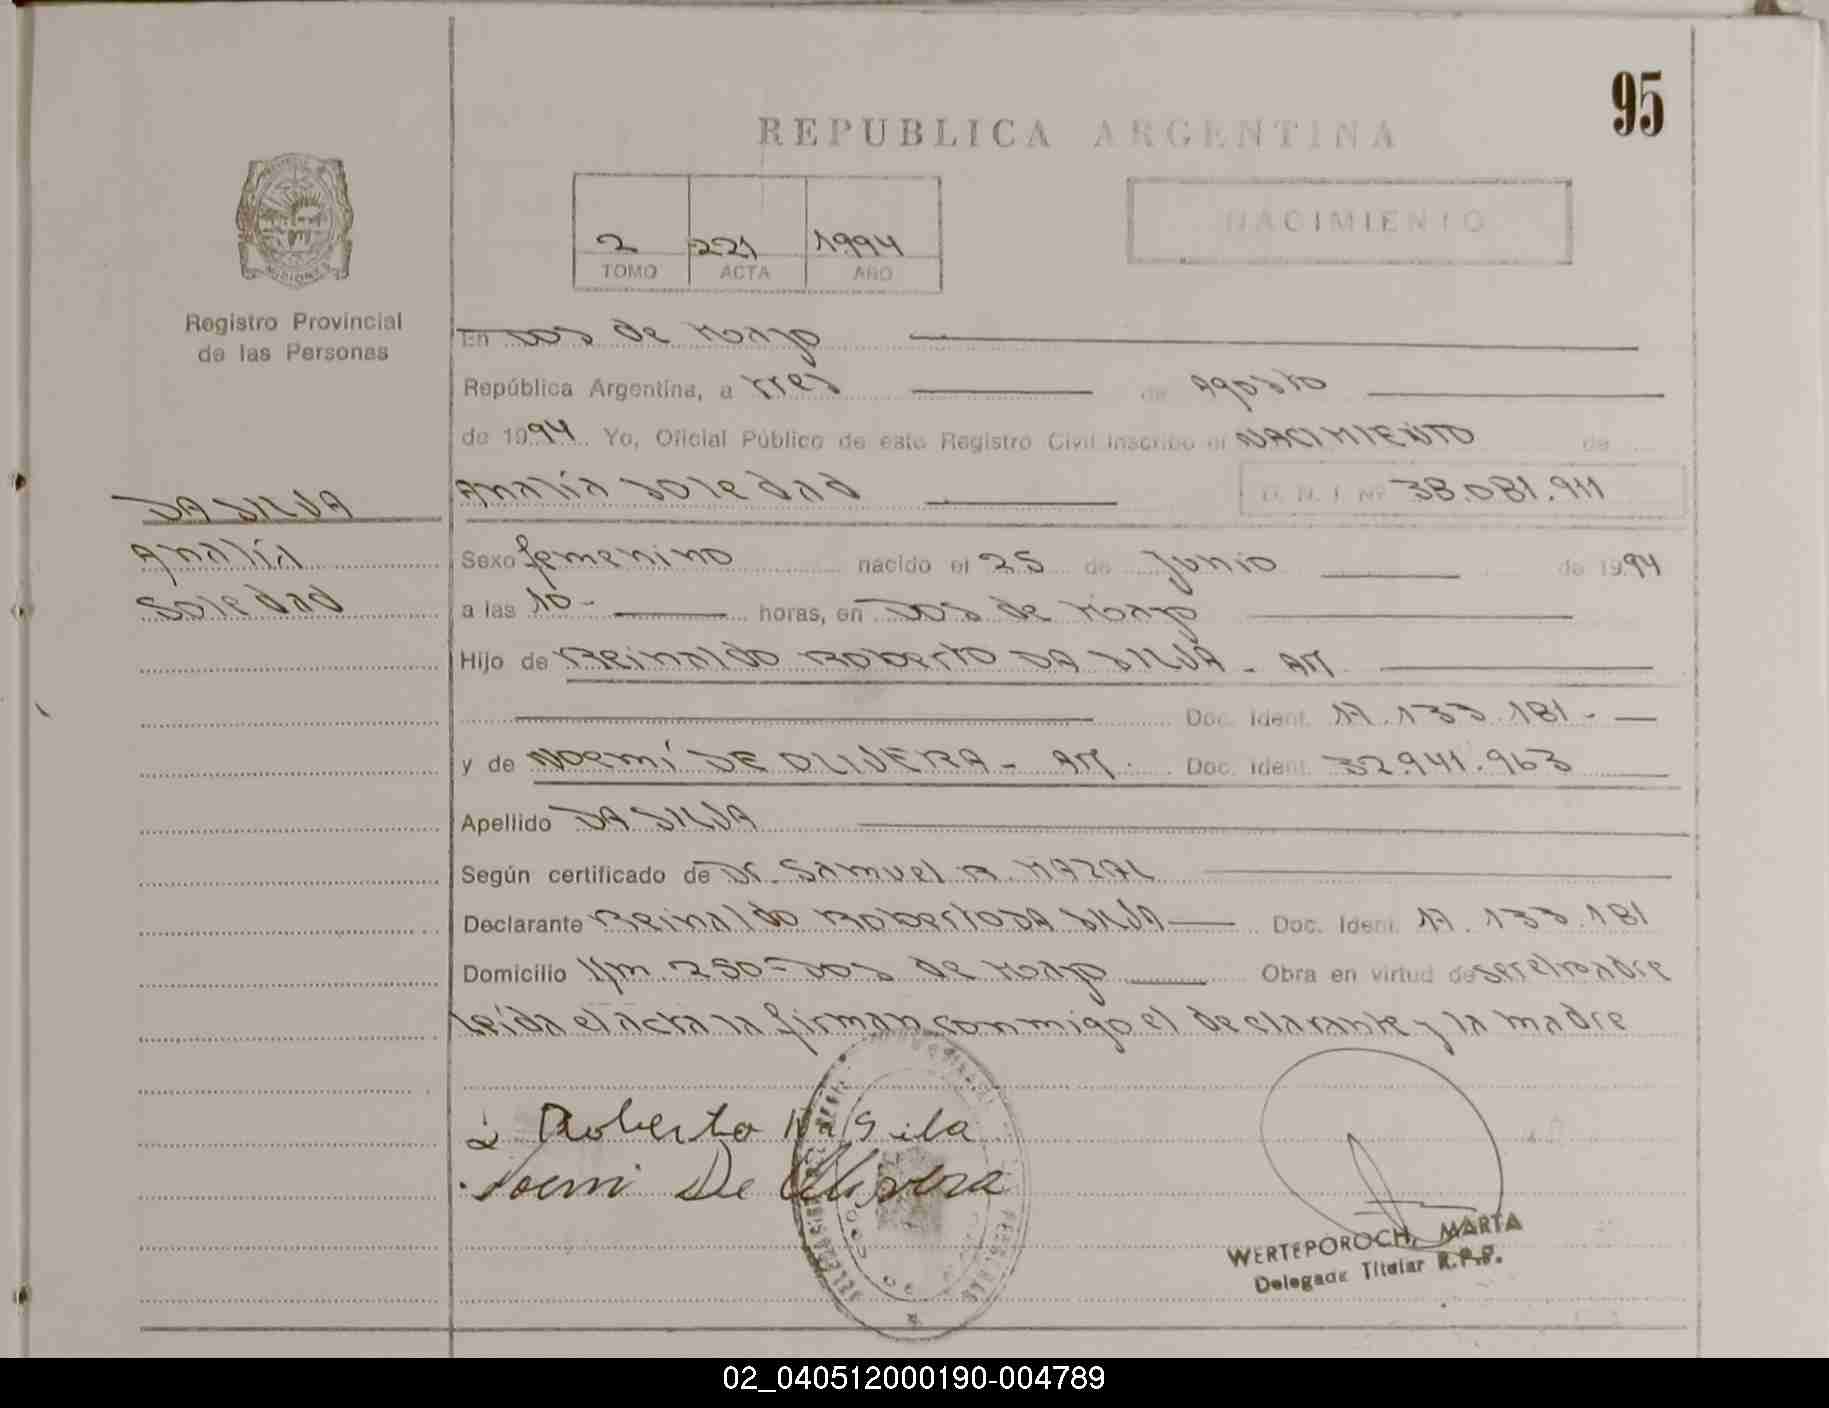 95
REPUBLICA ARGENTINA
NACIMIENTO
2 221 1994
TOMO ACTA AÑO
Registro Provincial
de las Personas
En Dos de Mayo
República Argentina, a tres de Agosto
de 1994 Yo, Oficial Público de este Registro Civil inscribo el NACIMIENTO de
DA SILVA
Analía
Soledad
Analía Soledad D. N. I. Nº 38.081.911
Sexo femenino nacido el 25 de Junio de 1994
a las 10- horas, en Dos de Mayo
Hijo de Reinaldo Roberto DA SILVA - AR
Doc. Ident. 17.133.181-
y de Noemí DE OLIVERA - AR. Doc. Ident. 32.941.963
Apellido DA SILVA
Según certificado de Dr. Samuel R. MAZAL
Declarante Reinaldo Roberto DA SILVA Doc. Ident. 17.133.181
Domicilio Km. 250-Dos de Mayo Obra en virtud de ser el padre
Leída el acta la firman conmigo el declarante y la madre
Roberto Da Sila
Noemi De Olivera
WERTEPOROCH, MARTA
Delegada Titular R.P.P.
02_040512000190-004789